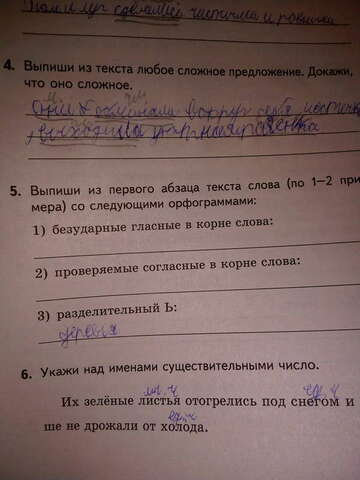 и луг сделались чистыми и ровными
4. Выпиши из текста любое сложное предложение. Докажи,
что оно сложное.
Они вокруг себя
5. Выпиши из первого абзаца текста слова (по 1—2 при
мера) со следующими орфограммами:
1) безударные гласные в корне слова:
2) проверяемые согласные в корне слова:
3) разделительный Ь:
деревья
6. Укажи над именами существительными число.
мн. ч ед. ч
Их зелёные листья отогрелись под снегом и
ед. ч
ше не дрожали от холода.